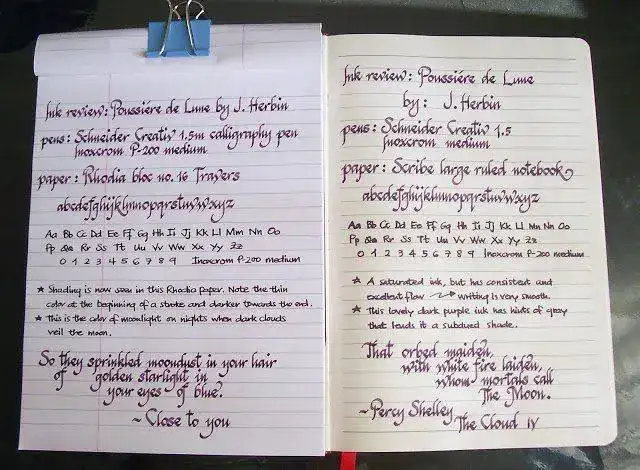 Ink review: Poussiére de Lune by J. Herbin
pens: Schneider Creativ 1.5m calligraphy pen
Inoxcrom P-200 medium
paper: Rhodia bloc no. 16 Travers
abcdefghijklmnopqrstufwxyz
Aa Bb Cc Dd Ee Ff Gg Hh Ii Jj Kk Ll Mm Nn Oo
Pp Qq Rr Ss Tt Uu Vv Ww Xx Yy Zz
0 1 2 3 4 5 6 7 8 9 Inoxcrom P-200 medium
★ Shading is now seen in this Rhodia paper. Note the thin
color at the beginning of a stroke and darker towards the end.
★ This is the color of moonlight on nights when dark clouds
veil the moon.
So they sprinkled moondust in your hair
of golden starlight in
your eyes of blue.
~ Close to you
Ink review: Poussiére de Lune
by: J. Herbin
pens: Schneider Creativ 1.5
Inoxcrom medium
paper: Scribe large ruled notebook
abcdefghijklmnopqrstuvwxyz
Aa Bb Cc Dd Ee Ff Gg Hh Ii Jj Kk Ll Mm Nn Oo
Pp Qq Rr Ss Tt Uu Vv Ww Xx Yy Zz
0 1 2 3 4 5 6 7 8 9 Inoxcrom P-200 medium
★ A saturated ink, but has consistent and
excellent flow → writing is very smooth.
★ This lovely dark purple ink has hints of gray
that lends it a subdued shade.
That orbed maiden,
with white fire laiden,
whom mortals call
The Moon.
~Percy Shelley
The Cloud IV